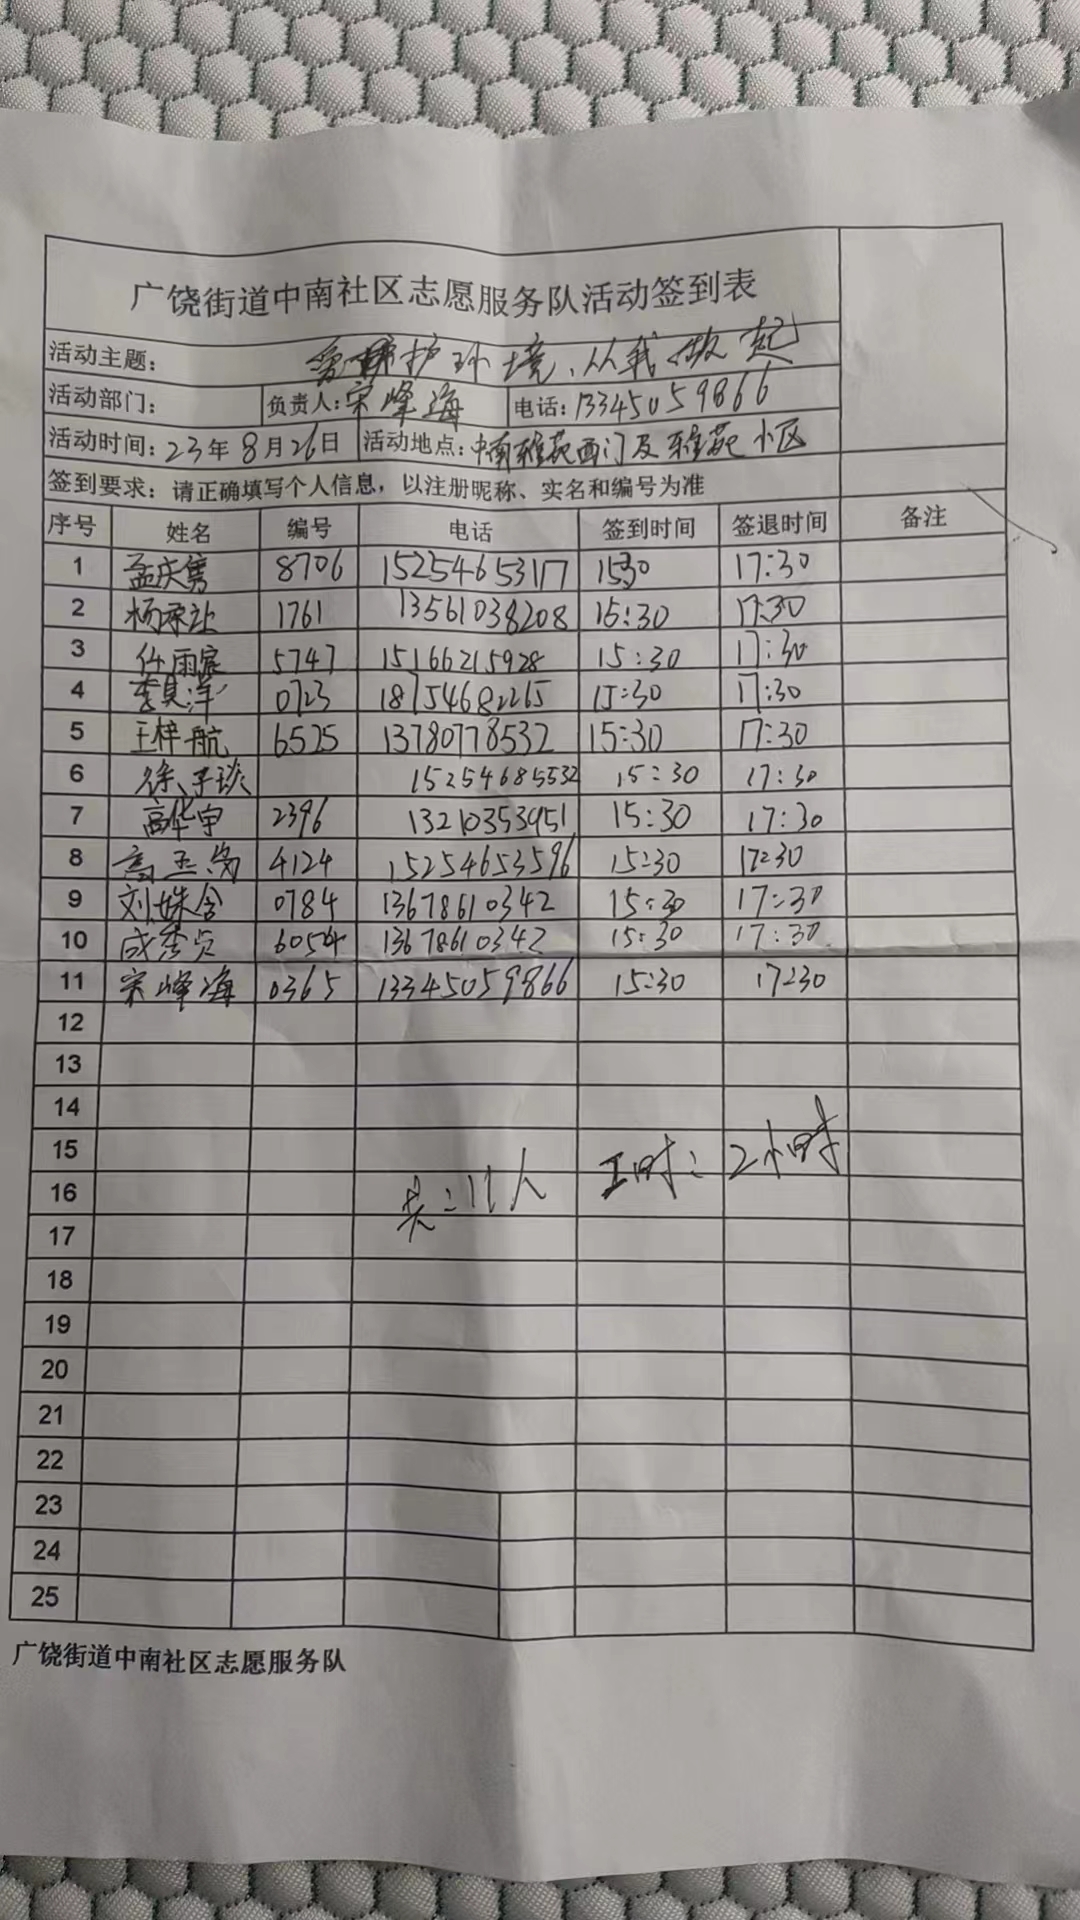 广饶街道中南社区志愿服务队活动签到表
活动主题: 爱护环境、从我做起
活动部门: 负责人: 宋峰海 电话: 13345059866
活动时间: 23年8月26日 活动地点: 中南雅苑西门及雅苑小区
签到要求: 请正确填写个人信息，以注册昵称、实名和编号为准
序号 姓名 编号 电话 签到时间 签退时间 备注
1 孟庆隽 8706 15254653117 15:30 17:30
2 杨承让 1761 13561038208 15:30 17:30
3 任雨宸 5747 15166215928 15:30 17:30
4 李昊洋 0723 18754682265 15:30 17:30
5 王梓航 6525 13780778532 15:30 17:30
6 徐子琰 15254685532 15:30 17:30
7 高华申 2396 13210353951 15:30 17:30
8 高玉岗 4124 15254653596 15:30 17:30
9 刘姝含 0784 13678610342 15:30 17:30
10 成秀贞 6054 13678610342 15:30 17:30
11 宋峰海 0365 13345059866 15:30 17:30
12
13
14
15 工时: 2小时
16 共: 11人
17
18
19
20
21
22
23
24
25
广饶街道中南社区志愿服务队